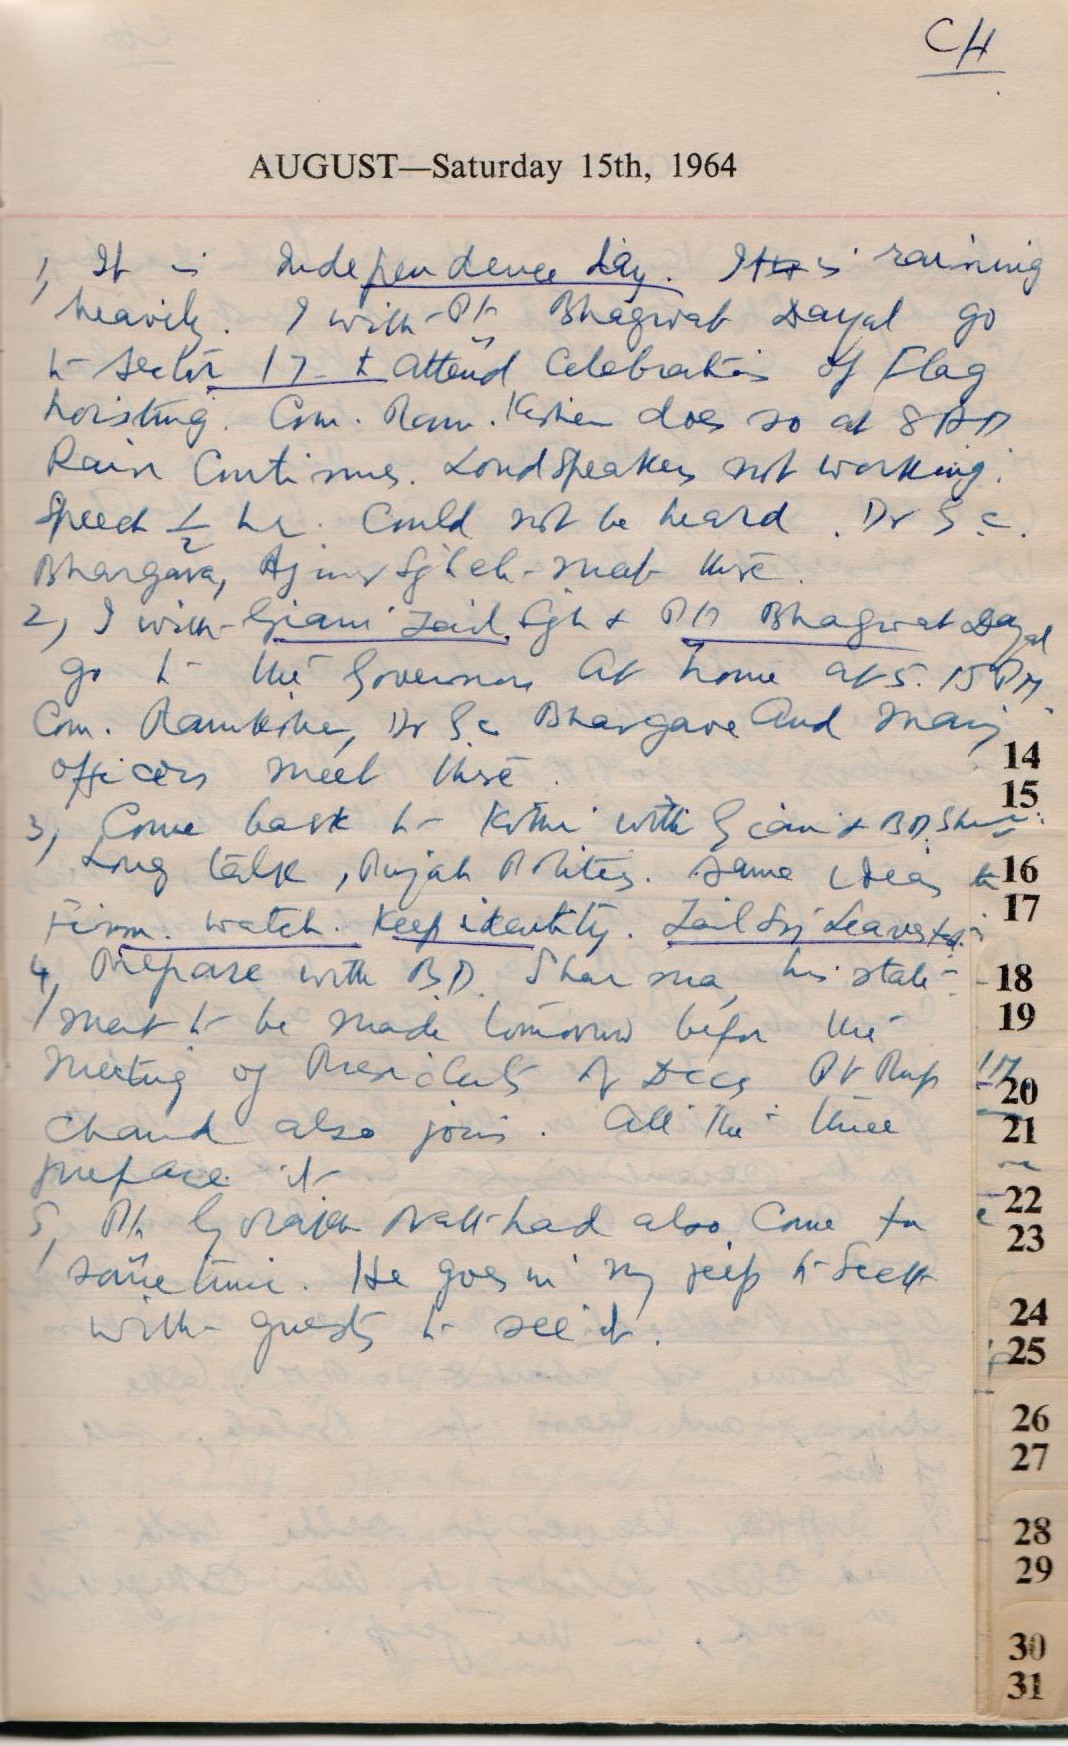 CH
AUGUST—Saturday 15th, 1964
1, It is Independence Day. It is raining
heavily. I with Pt Bhagwat Dayal go
to Sector 17 to attend Celebrations of Flag
hoisting. Com. Ram Kishen does so at 8 AM
Rain Continues. Loudspeakers not working.
Speech 1/2 hr. Could not be heard. Dr S.C.
Bhargava, Ajmer Sgh etc met there.
2, I with Giani Zail Sgh & Pt Bhagwat Dayal
go to the Governors At home at 5.15 PM
Com. Ramkishen, Dr S.C Bhargava and many
officers meet there.
3, Come back to Kothi with Giani & BD. Sharma.
Long talk, Punjab Politics. Same ideas
Firm. watch. Keep identity. Zail Sgh Leaves
4, Prepare with BD. Sharma, his state-
ment to be made tomorrow before the
Meeting of Presidents of DCCs Pt Rup
Chand also joins. All the three
prepare it
5, Pt had also come for
some time. He goes in my jeep to
with guests to see it.
14
15
16
17
18
19
20
21
22
23
24
25
26
27
28
29
30
31